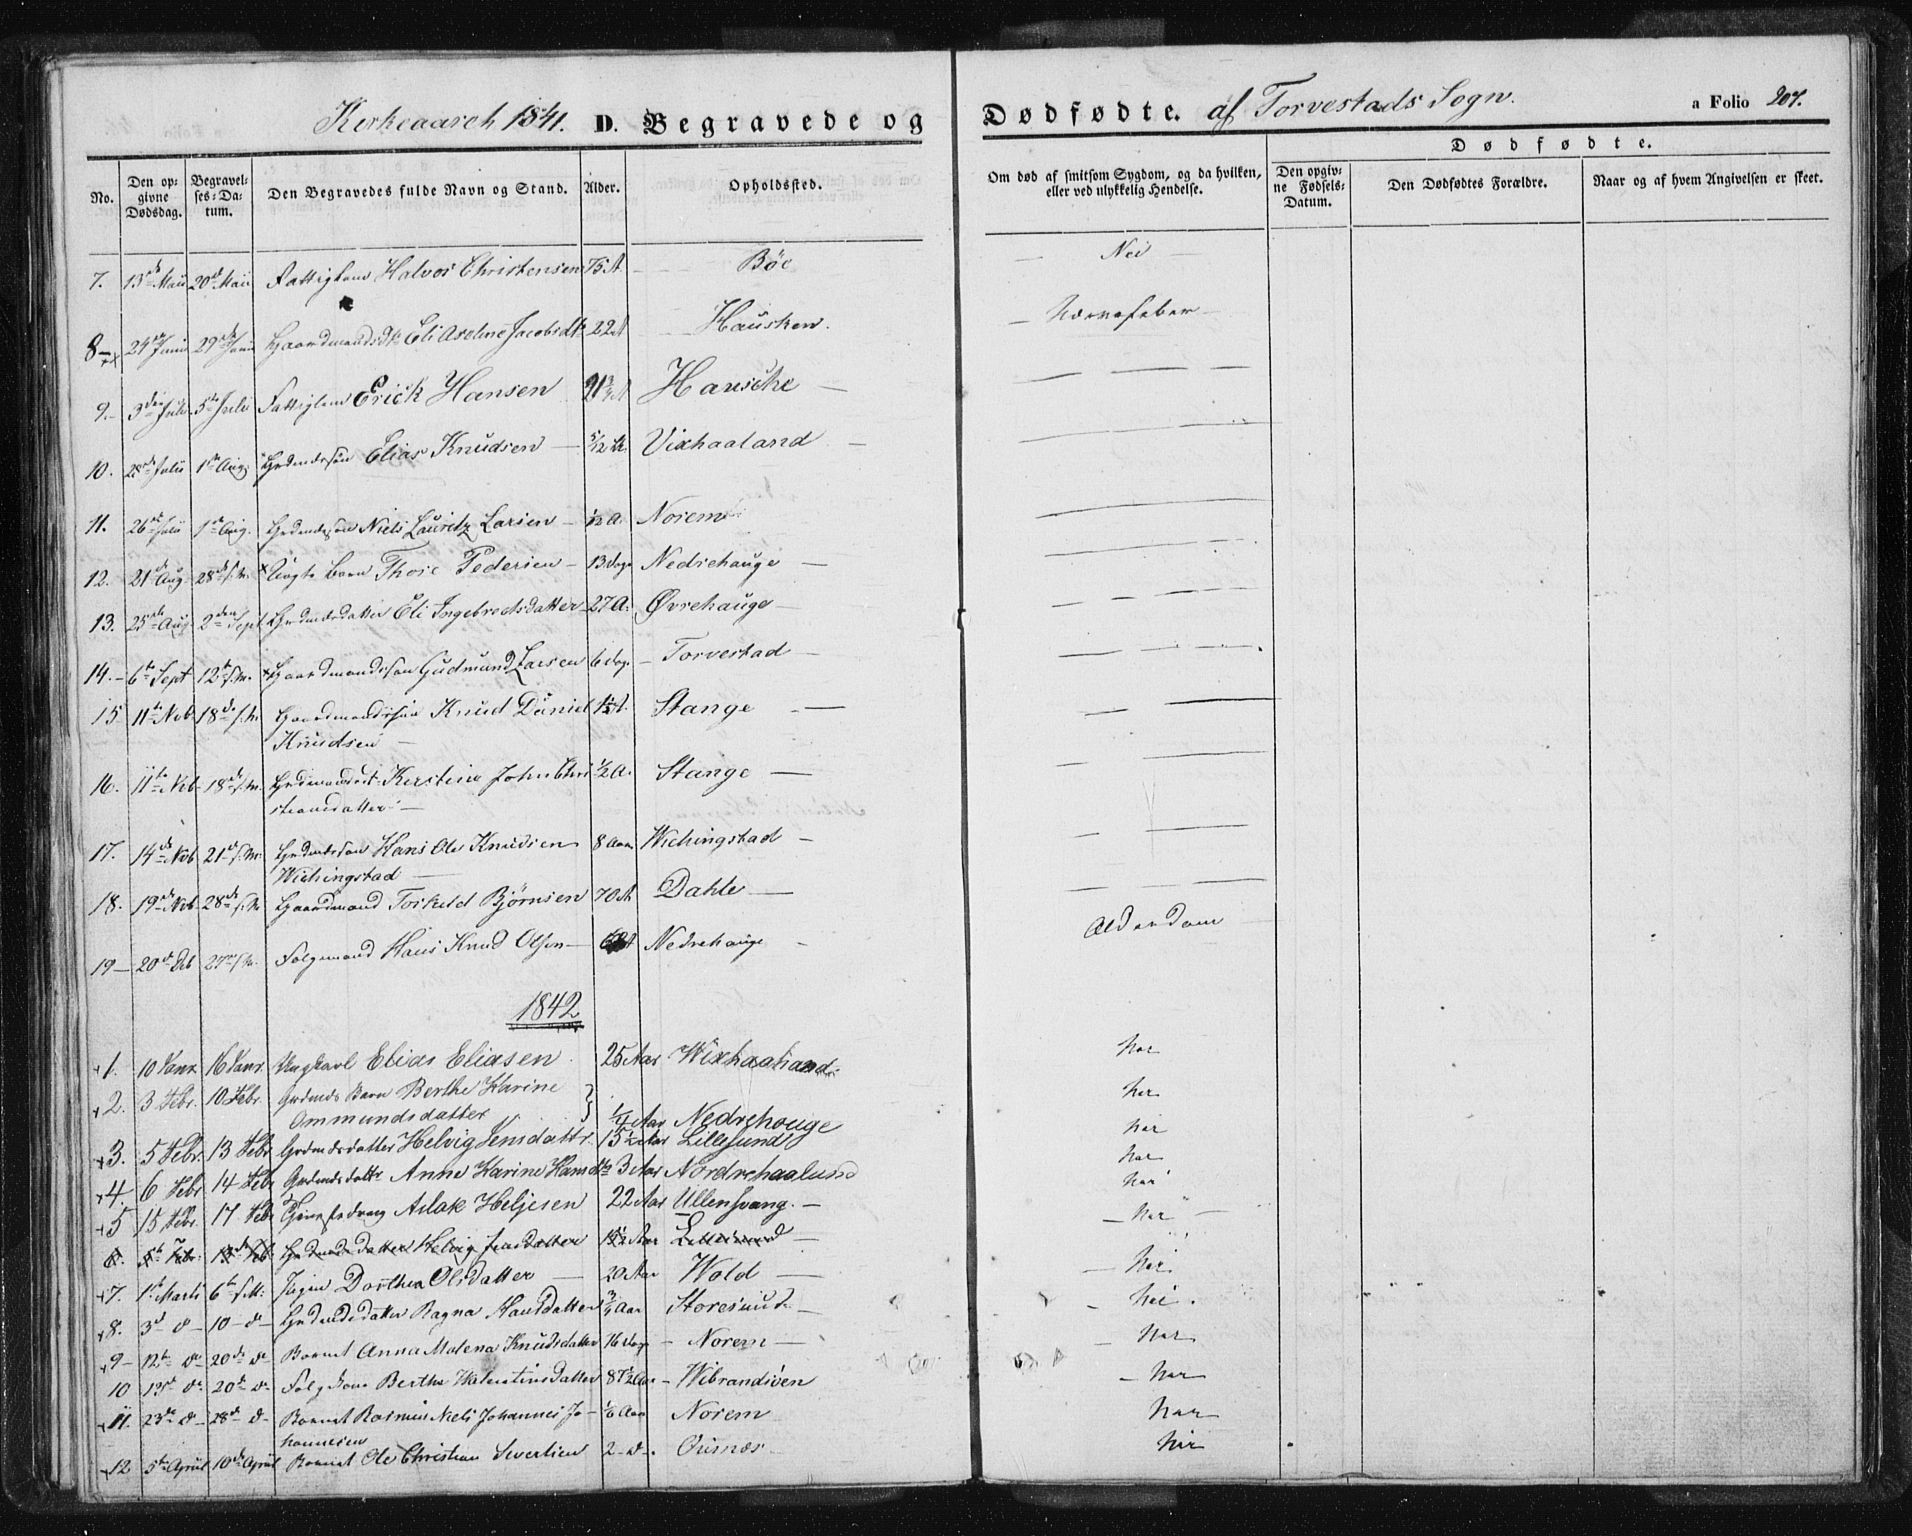 Kerkeaaret 1841. D. Begravede og Dødfødte. af Torvestads Sogn. a Folio 207.
No. Den opgivne Dødsdag. Begravelses-Datum. Den Begravedes fulde Navn og Stand. Alder. Opholdssted. Om død af smitsom Sygdom, og da hvilken, eller ved ulykkelig Hendelse. Dødfødte. Den opgivne Fødsels-Datum. Den Dødfødtes Forældre. Naar og af hvem Angivelsen er skeet.
7. 13de Maii 20de Maii Fattiglem Halvor Christensen 75 A. Bøe — Nei —
8 24de Junii 29de Junii Gaardmandsdtr Eli Aseline Jacobsdtr 22 A Hausken. — Nervefeber —
9. 3die Julii 5te Julii Fattiglem Erick Hansen Hausche —
10. 28de Julii 1ste Aug. Grdmdssøn Elias Knudsen — 5/12 A. Vixhaaland —
11. 26de Julii 1ste Aug. Grdmdssøn Niels Lauritz Larsen — 1/12 A. Norem
12. 21de Aug. 28de s.M. Uægte Barn Thore Pedersen — 13 Dage Nedrehauge —
13. 25de Aug. 2den Sept Grdmdsdatter Eli Ingebrectsdatter 27 A. Øvrehauge —
14. 6te Sept 12te s.M. Gaardmandssøn Gudmund Larsen 6 Dage — Torvestad —
15 11te Nvb 18de s.M. Gaardmandssøn Knud Daniel Stange —
Knudsen —
16. 11te Nvb 18de s.M. Grdmandsdt. Kirstine John Chri 1/2 A. Stange —
stiansdatter —
17. 14de Nvb 21de s.M. Grdmdssøn Hans Ole Knudsen 8 Aar Wichingstad —
Wichingstad —
18. 19de Nvb 28de s.M. Gaardmand Torkild Bjørnsen 70 A Dahle —
19 — 20de Dcb 27de s.M. Folgemand Hans Knud Olsen — Nedrehauge — Alderdom
1842
1. 10 Janr. 16 Janr. Ungkarl Elias Eliasen 25 Aar Wixhaaland Nei
2. 3 Febr. 10 Febr. Grdmds Barn Berthe Karine } Nei
Ommundsdatter 1/4 Aar Nedrehouge
3. 5 Febr. 13 Febr. Grdmdsdatter Helvig Jensdattr. 15 1/2 Aar Lillesund Nei
4. 6 Febr 14 Febr Grdmdsdattr. Anne Karine Hansdtr 3 Aar Nordrehaaland Nei
5 15 Febr. 17 Febr Tjenestedreng Aslak Heljesen 22 Aar Ullensvang. — Nei
6. 5te Febr. 13de Feb Grdmdsdatter Helvig Jensdatter 15 1/2 Aar Lillesund — — Nei —
7. 1ste Marts 6te s.M. Pigen Dorthea Olsdatter — 20 Aar Wold — — Nei
8. 3de d — 10 — d — Grdmdsdatter Ragna Hansdatter 3/4 Aar Storesund — — Nei.
9 — 12te d — 20de d Barnet Anna Malena Knudsdatter 16 Dage — Norem — — Nei
10 13de d — 20de d Folgekone Berthe Valentinsdatter 87 1/2 Aar — Wibrandsøen — Nei
11. 23de d — 28de d — Barnet Rasmus Niels Johannes Jo- 1/6 Aar Norem Nei
hannesen
12 5te April 10de April Barnet Ole Christian Sivertsen 2 — d —. Osnæs Nei